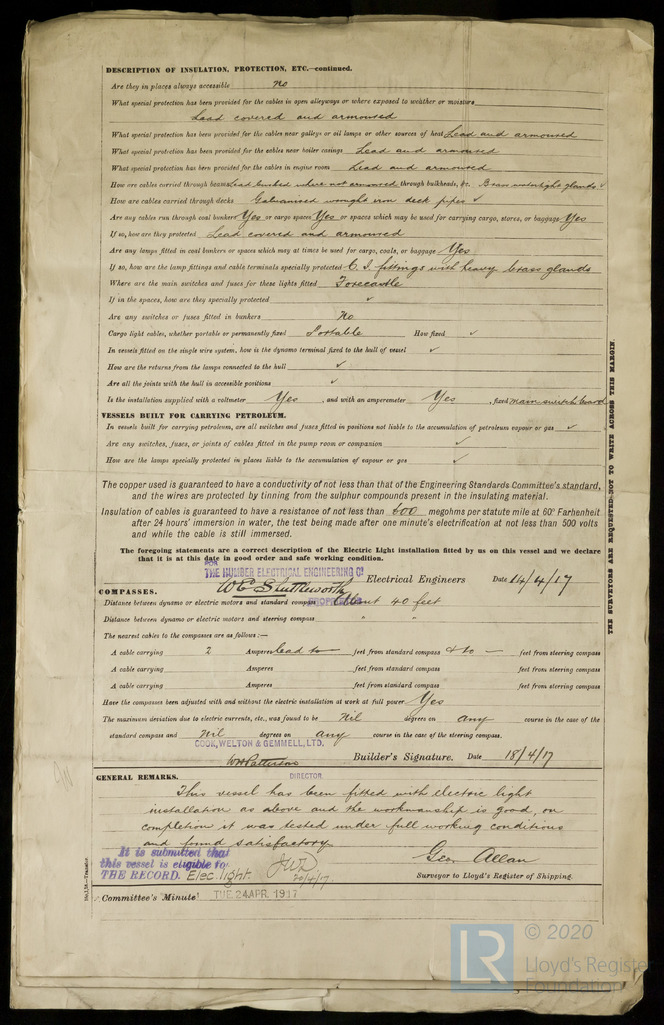 DESCRIPTION OF INSULATION, PROTECTION, ETC.—continued.
Are they in places always accessible no
What special protection has been provided for the cables in open alleyways or where exposed to weather or moisture
Lead covered and armoured
What special protection has been provided for the cables near galleys or oil lamps or other sources of heat Lead and armoured
What special protection has been provided for the cables near boiler casings Lead and armoured
What special protection has been provided for the cables in engine room Lead and armoured
How are cables carried through beams Lead bushed where not armoured through bulkheads, &c. Brass watertight glands ✓
How are cables carried through decks Galvanised wrought iron deck pipes ✓
Are any cables run through coal bunkers Yes or cargo spaces Yes or spaces which may be used for carrying cargo, stores, or baggage Yes
If so, how are they protected Lead covered and armoured
Are any lamps fitted in coal bunkers or spaces which may at times be used for cargo, coals, or baggage Yes
If so, how are the lamp fittings and cable terminals specially protected C. I. fittings with heavy brass glands
Where are the main switches and fuses for these lights fitted Forecastle
If in the spaces, how are they specially protected ✓
Are any switches or fuses fitted in bunkers No
Cargo light cables, whether portable or permanently fixed Portable How fixed ✓
In vessels fitted on the single wire system, how is the dynamo terminal fixed to the hull of vessel ✓
How are the returns from the lamps connected to the hull ✓
Are all the joints with the hull in accessible positions ✓
Is the installation supplied with a voltmeter Yes, and with an amperemeter Yes, fixed main switch board
VESSELS BUILT FOR CARRYING PETROLEUM.
In vessels built for carrying petroleum, are all switches and fuses fitted in positions not liable to the accumulation of petroleum vapour or gas ✓
Are any switches, fuses, or joints of cables fitted in the pump room or companion ✓
How are the lamps specially protected in places liable to the accumulation of vapour or gas ✓
The copper used is guaranteed to have a conductivity of not less than that of the Engineering Standards Committee's standard,
and the wires are protected by tinning from the sulphur compounds present in the insulating material.
Insulation of cables is guaranteed to have a resistance of not less than 600 megohms per statute mile at 60° Farhenheit
after 24 hours' immersion in water, the test being made after one minute's electrification at not less than 500 volts
and while the cable is still immersed.
The foregoing statements are a correct description of the Electric Light installation fitted by us on this vessel and we declare
that it is at this date in good order and safe working condition.
FOR
THE HUMBER ELECTRICAL ENGINEERING Co
W E Shuttleworth Electrical Engineers Date 14/4/17
COMPASSES.
Distance between dynamo or electric motors and standard compass About 40 feet
Distance between dynamo or electric motors and steering compass " "
The nearest cables to the compasses are as follows:—
A cable carrying 2 Amperes lead to feet from standard compass feet from steering compass
A cable carrying Amperes feet from standard compass feet from steering compass
A cable carrying Amperes feet from standard compass feet from steering compass
Have the compasses been adjusted with and without the electric installation at work at full power Yes
The maximum deviation due to electric currents, etc., was found to be Nil degrees on any course in the case of the
standard compass and Nil degrees on any course in the case of the steering compass.
COOK, WELTON & GEMMELL, LTD.
WH Patterson Builder's Signature. Date 18/4/17
DIRECTOR
GENERAL REMARKS.
This vessel has been fitted with electric light
installation as above and the workmanship is good, on
completion it was tested under full working conditions
and found satisfactory.
It is submitted that
this vessel is eligible for
THE RECORD. Elec light.
Geo. Allan
Surveyor to Lloyd's Register of Shipping.
Committee's Minute TUE. 24 APR. 1917
THE SURVEYORS ARE REQUESTED NOT TO WRITE ACROSS THIS MARGIN.
LR © 2020
Lloyd's Register
Foundation